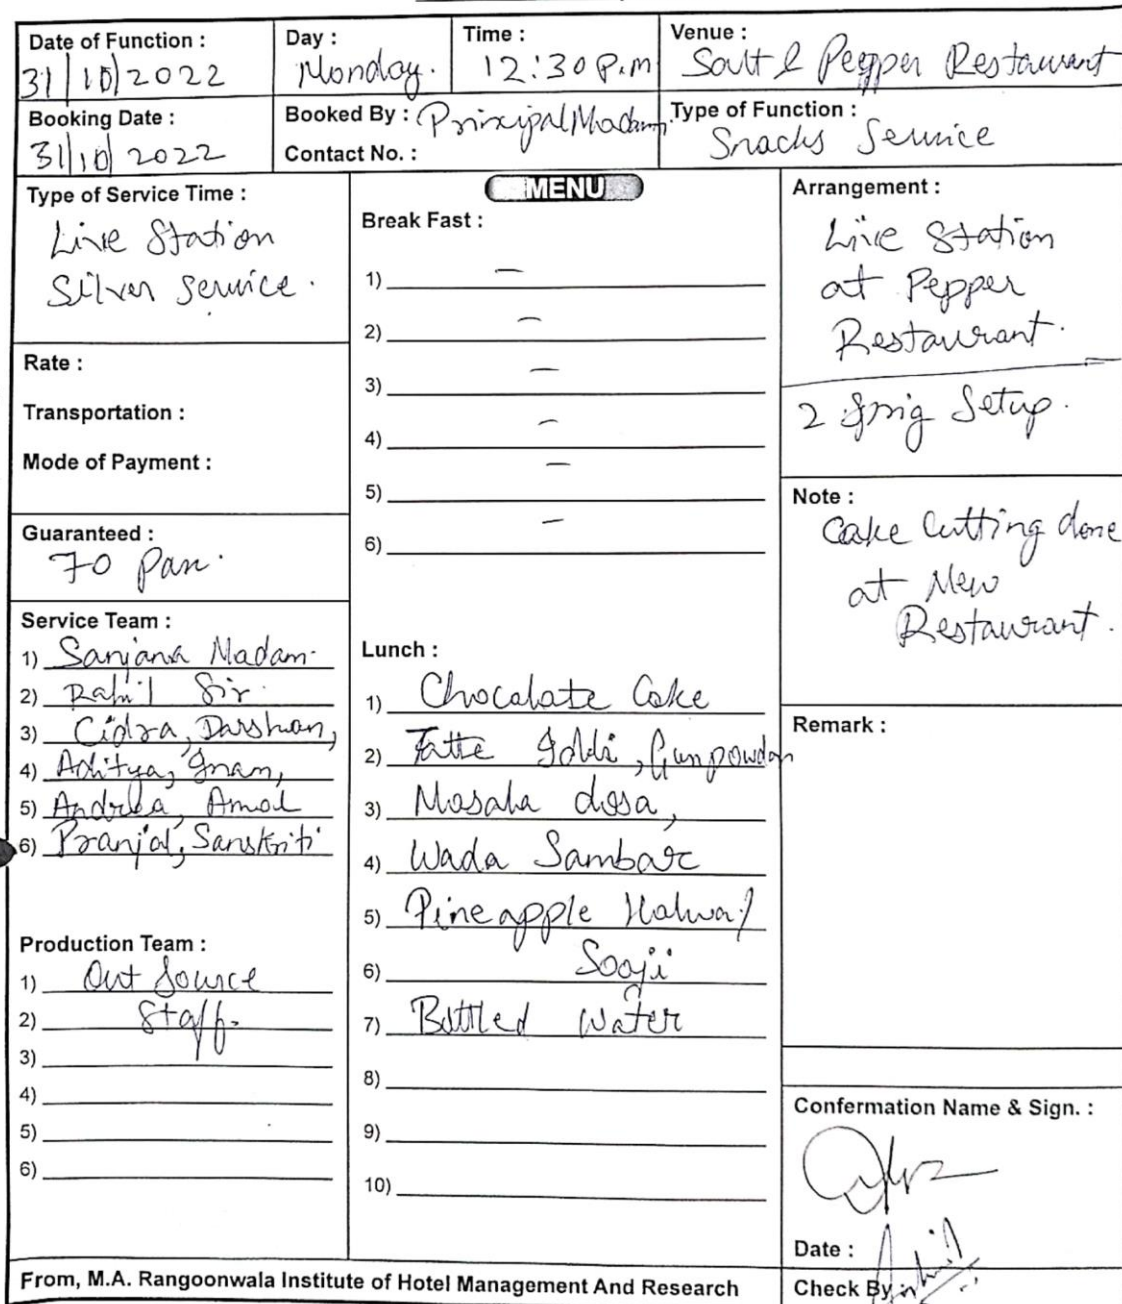 Date of Function :
31/10/2022
Day :
Monday.
Time :
12:30 P.m
Venue :
Salt & Pepper Restaurant
Booking Date :
31/10/2022
Booked By : Principal Madam
Contact No. :
Type of Function :
Snacks Service
Type of Service Time :
Live Station
Silver Service.
Rate :
Transportation :
Mode of Payment :
Guaranteed :
70 Pax.
Service Team :
1) Sanjana Madam.
2) Rahil Sir.
3) Cidra, Darshan,
4) Aditya, Inam,
5) Andrea, Amol
6) Pranjal, Sanskriti
Production Team :
1) Out Source
2) Staff.
3)
4)
5)
6)
MENU
Break Fast :
1) –
2) –
3) –
4) –
5) –
6) –
Lunch :
1) Chocalate Cake
2) Tatte Iddli, Gunpowder
3) Masala dosa,
4) Wada Sambar
5) Pineapple Halwa/
6) Sooji
7) Bottled Water
8)
9)
10)
Arrangement :
Live Station
at Pepper
Restaurant.
2 Setup.
Note :
Cake Cutting done
at New
Restaurant.
Remark :
Confermation Name & Sign. :
Date :
Check By
From, M.A. Rangoonwala Institute of Hotel Management And Research